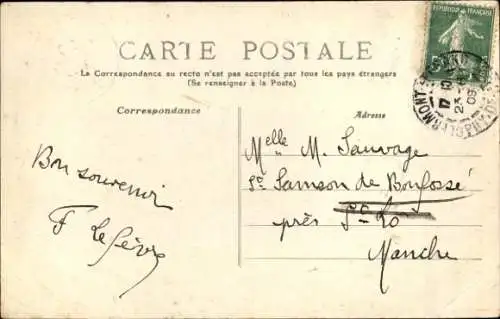 RÉPUBLIQUE FRANÇAISE
CARTE POSTALE
La Correspondance au recto n'est pas acceptée par tous les pays étrangers
(Se renseigner à la Poste)
Correspondance
Adresse
Bon souvenir
F Lefèvre
Melle M. Sauvage
St Samson de Bonfossé
près St Lo
Manche